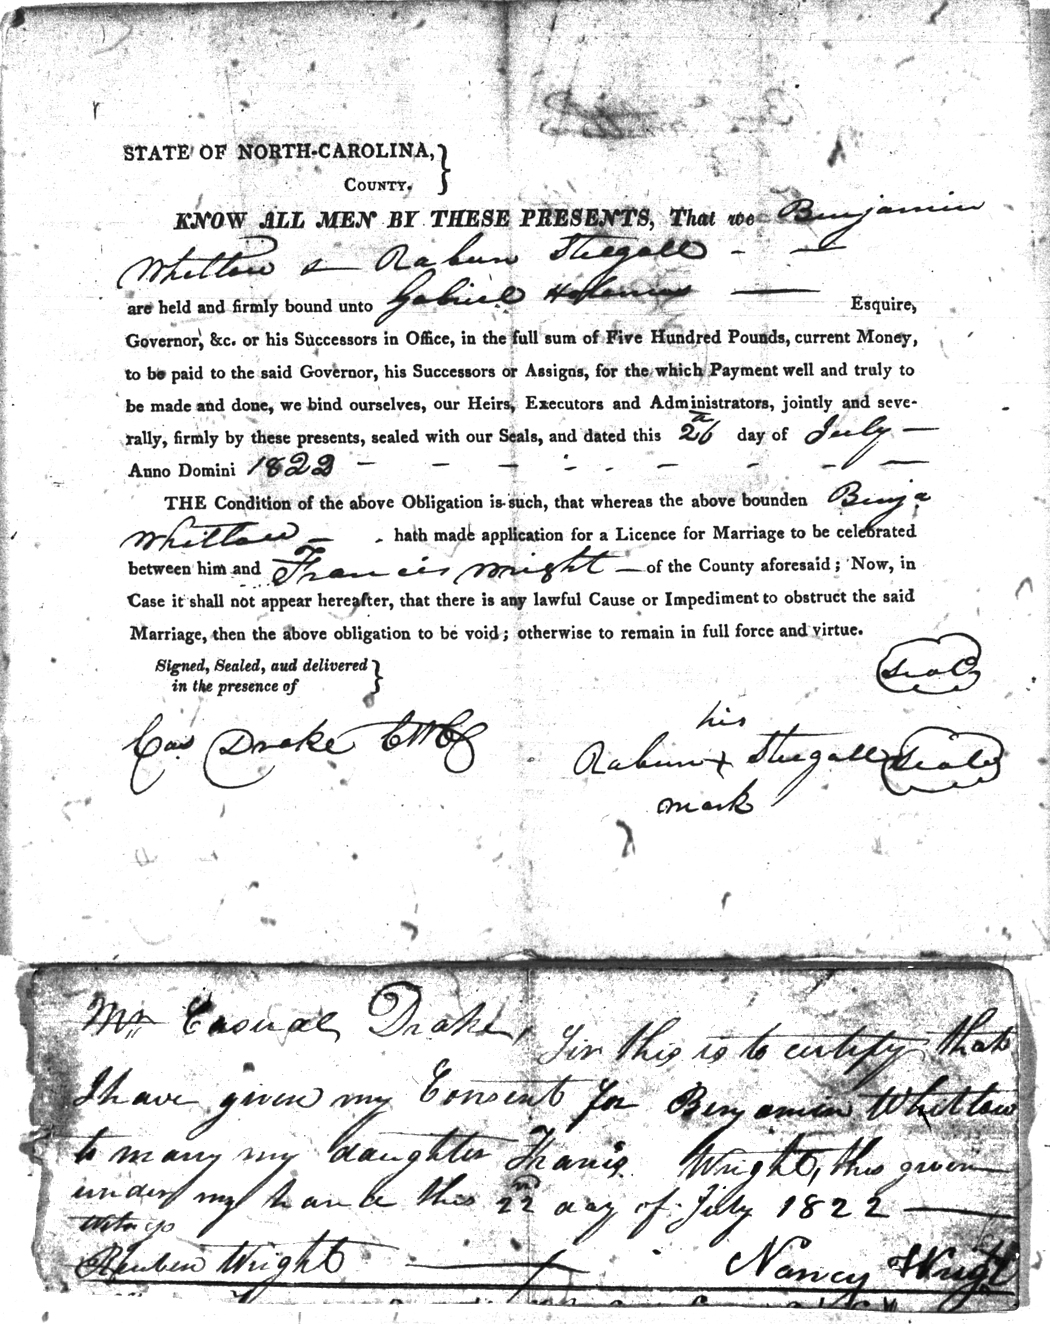 STATE OF NORTH-CAROLINA,
COUNTY.
KNOW ALL MEN BY THESE PRESENTS, That we Benjamin
Whitlow & Raburn Steegall
are held and firmly bound unto Gabriel Holmes Esquire,
Governor, &c. or his Successors in Office, in the full sum of Five Hundred Pounds, current Money,
to be paid to the said Governor, his Successors or Assigns, for the which Payment well and truly to
be made and done, we bind ourselves, our Heirs, Executors and Administrators, jointly and seve-
rally, firmly by these presents, sealed with our Seals, and dated this 26 day of July
Anno Domini 1822
THE Condition of the above Obligation is such, that whereas the above bounden Benja
Whitlow hath made application for a Licence for Marriage to be celebrated
between him and Francis Wright of the County aforesaid; Now, in
Case it shall not appear hereafter, that there is any lawful Cause or Impediment to obstruct the said
Marriage, then the above obligation to be void; otherwise to remain in full force and virtue.
Signed, Sealed, aud delivered
in the presence of
Seal
Cas Drake CWC
his
Raburn + Steegall Seal
mark
Mr Casual Drake, Sir this is to certify that
I have given my Consent for Benjamin Whitlow
to marry my daughter Franis Wright, this given
under my hand this 22nd day of July 1822
Reuben Wright Nancy Wright